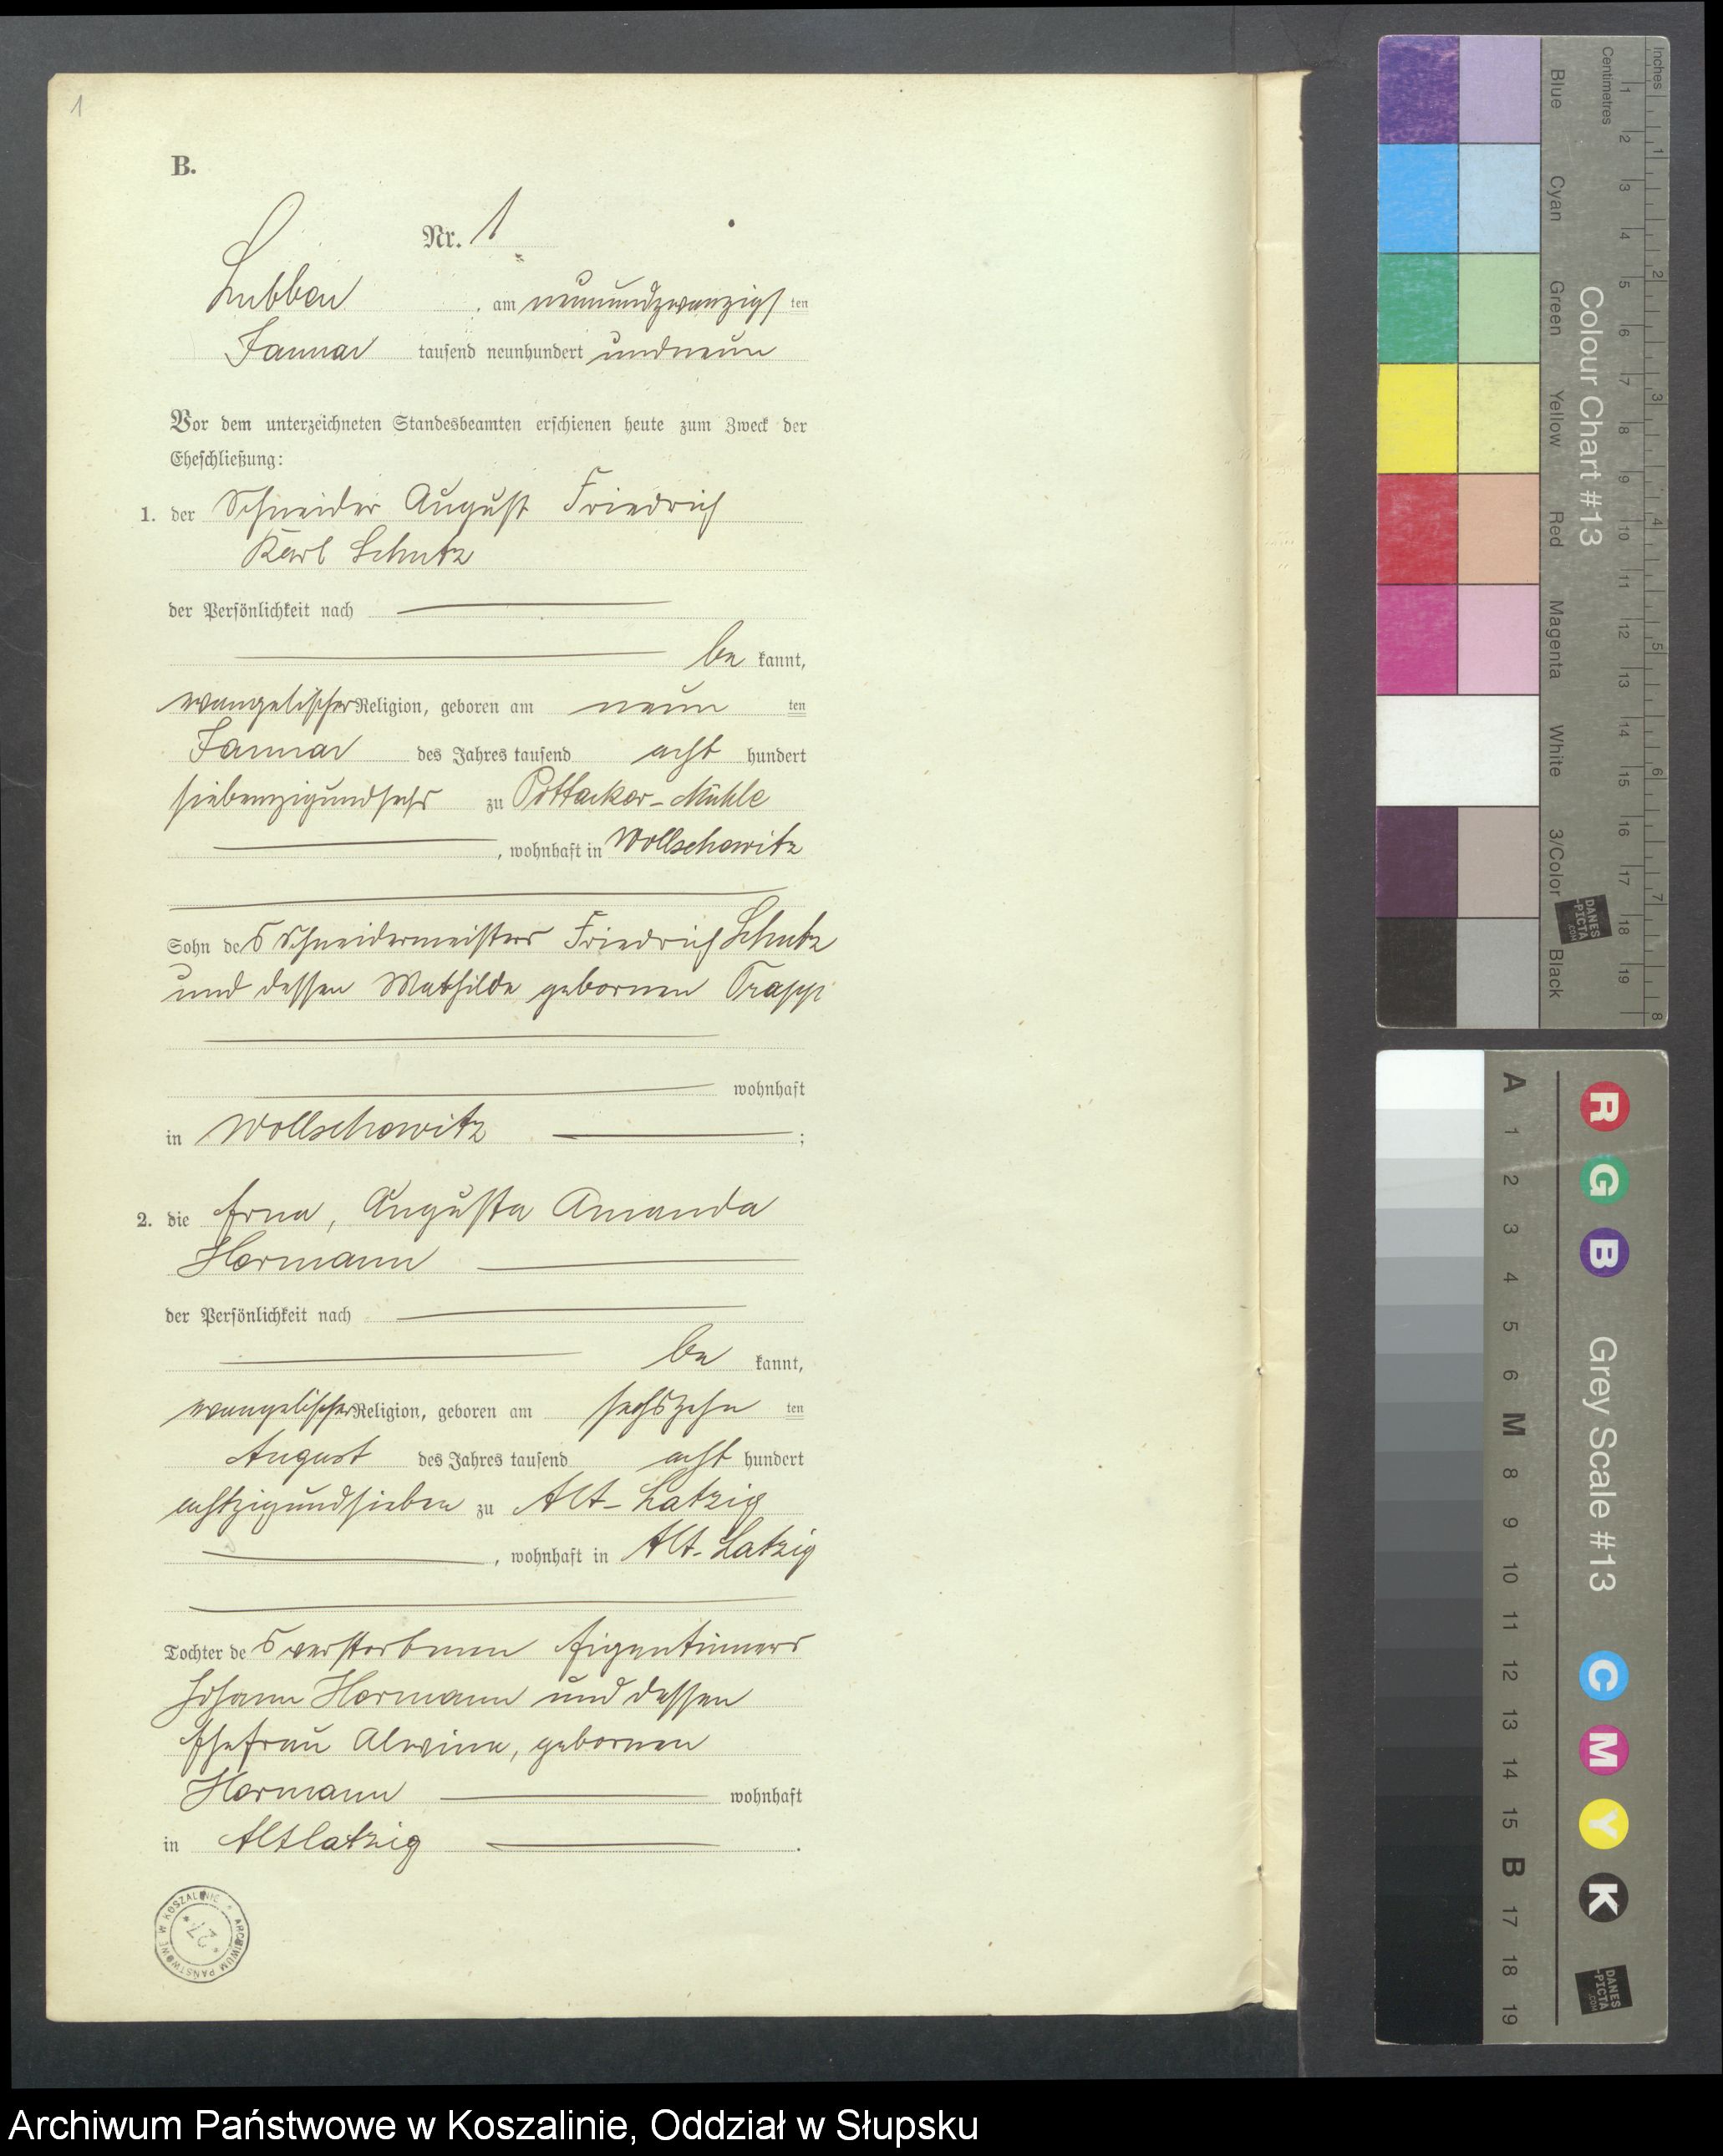 1
B.
Nr. 1
Lubben, am neunundzwanzigsten
Januar tausend neunhundert undneun
Vor dem unterzeichneten Standesbeamten erschienen heute zum Zweck der
Eheschließung:
1. der Schneider August Friedrich
Karl Schutz
der Persönlichkeit nach
be kannt,
evangelischer Religion, geboren am neun ten
Januar des Jahres tausend acht hundert
siebenzigundsechs zu Pottacker-Mühle
, wohnhaft in Wollschowitz
Sohn des Schneidermeisters Friedrich Schutz
und dessen Mathilde gebornen Trapp
wohnhaft
in Wollschowitz ;
2. die Erna, Augusta Amanda
Hermann
der Persönlichkeit nach
be kannt,
evangelischer Religion, geboren am sechszehn ten
August des Jahres tausend acht hundert
achtzigundsieben zu Alt-Latzig
, wohnhaft in Alt-Latzig
Tochter des verstorbenen Eigentümers
Johann Hermann und dessen
Ehefrau Alwine, gebornen
Hermann wohnhaft
in Altlatzig .
ARCHIWUM PAŃSTWOWE W KOSZALINIE
* 27 *
Inches
Centimetres
1 2 3 4 5 6 7 8 9 10 11 12 13 14 15 16 17 18 19
1 2 3 4 5 6 7 8
Colour Chart #13
Blue Cyan Green Yellow Red Magenta White 3/Color Black
DANES
-PICTA
.COM
A 1 2 3 4 5 6 M 8 9 10 11 12 13 14 15 B 17 18 19
R G B
Grey Scale #13
C M Y K
DANES
-PICTA
.COM
Archiwum Państwowe w Koszalinie, Oddział w Słupsku